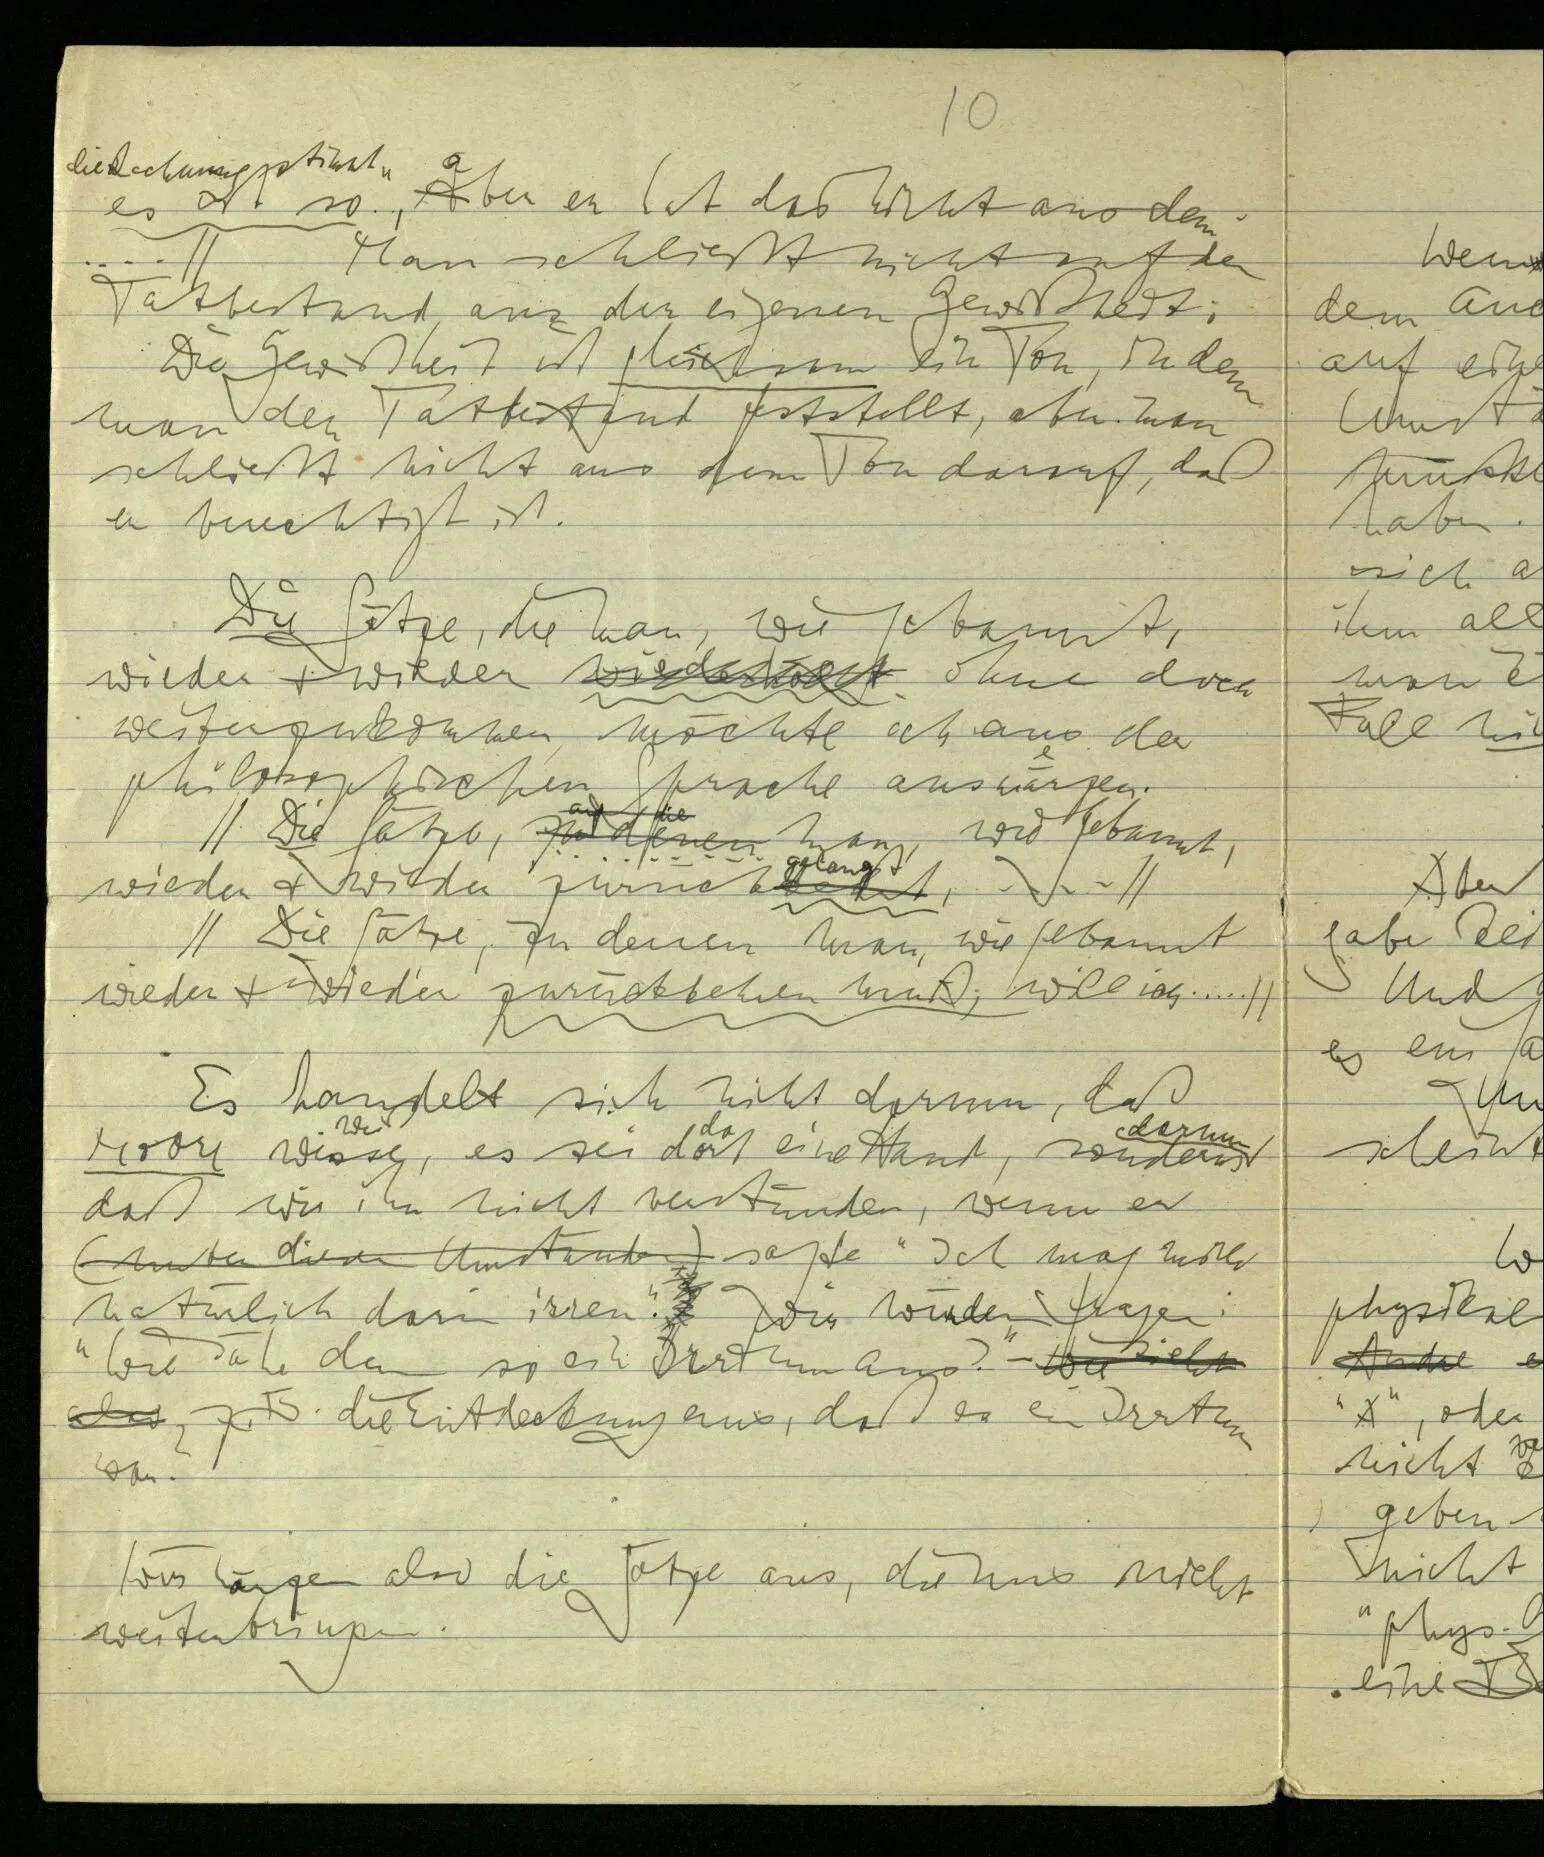 10
die Rechnung stimmt"
es ist so., a
Aber er hat das nicht aus dem
.... // Man schließt nicht auf den
Tatbestand aus der eigenen Gewißheit.
Die Gewißheit ist gleichsam ein Ton, in dem
man den Tatbestand feststellt, aber man
schließt nicht aus dem Ton darauf, daß
er berechtigt ist.
Die Sätze, die man, wie gebannt,
wieder & wieder wiederholt ohne doch
weiterzukommen möchte ich aus der
philosophischen Sprache ausmärzen.
e
// Die Sätze, zu denen man, wie gebannt,
auf die
wieder & wieder zurückkehrt, - - - - //
gelangt
// Die Sätze, zu denen man, wie gebannt
wieder & wieder zurückkehren muß, will ich.....//
Es handelt sich nicht darum, daß
Moore wisse, es sei dort eine Hand, sondern
wei
da
darum
daß wir ihn nicht verstünden, wenn er
(unter diesen Umständen) sagte "Ich mag mich
natürlich darin irren". Wir würden fragen:
"Wie sähe den so ein Irrtum aus?" - Wie sieht
also z.B. die Entdeckung aus, daß es ein Irrtum
war?
Wir märzen also die Sätze aus, die uns nicht
weiterbringen.
Wenn
dem
auf eine
haben.
sich a
ihm all
man
Fall
Aber
gabe
Und
es ein
scheint
physikal
"A", oder
nicht
geben
nicht
"phys. G
eine